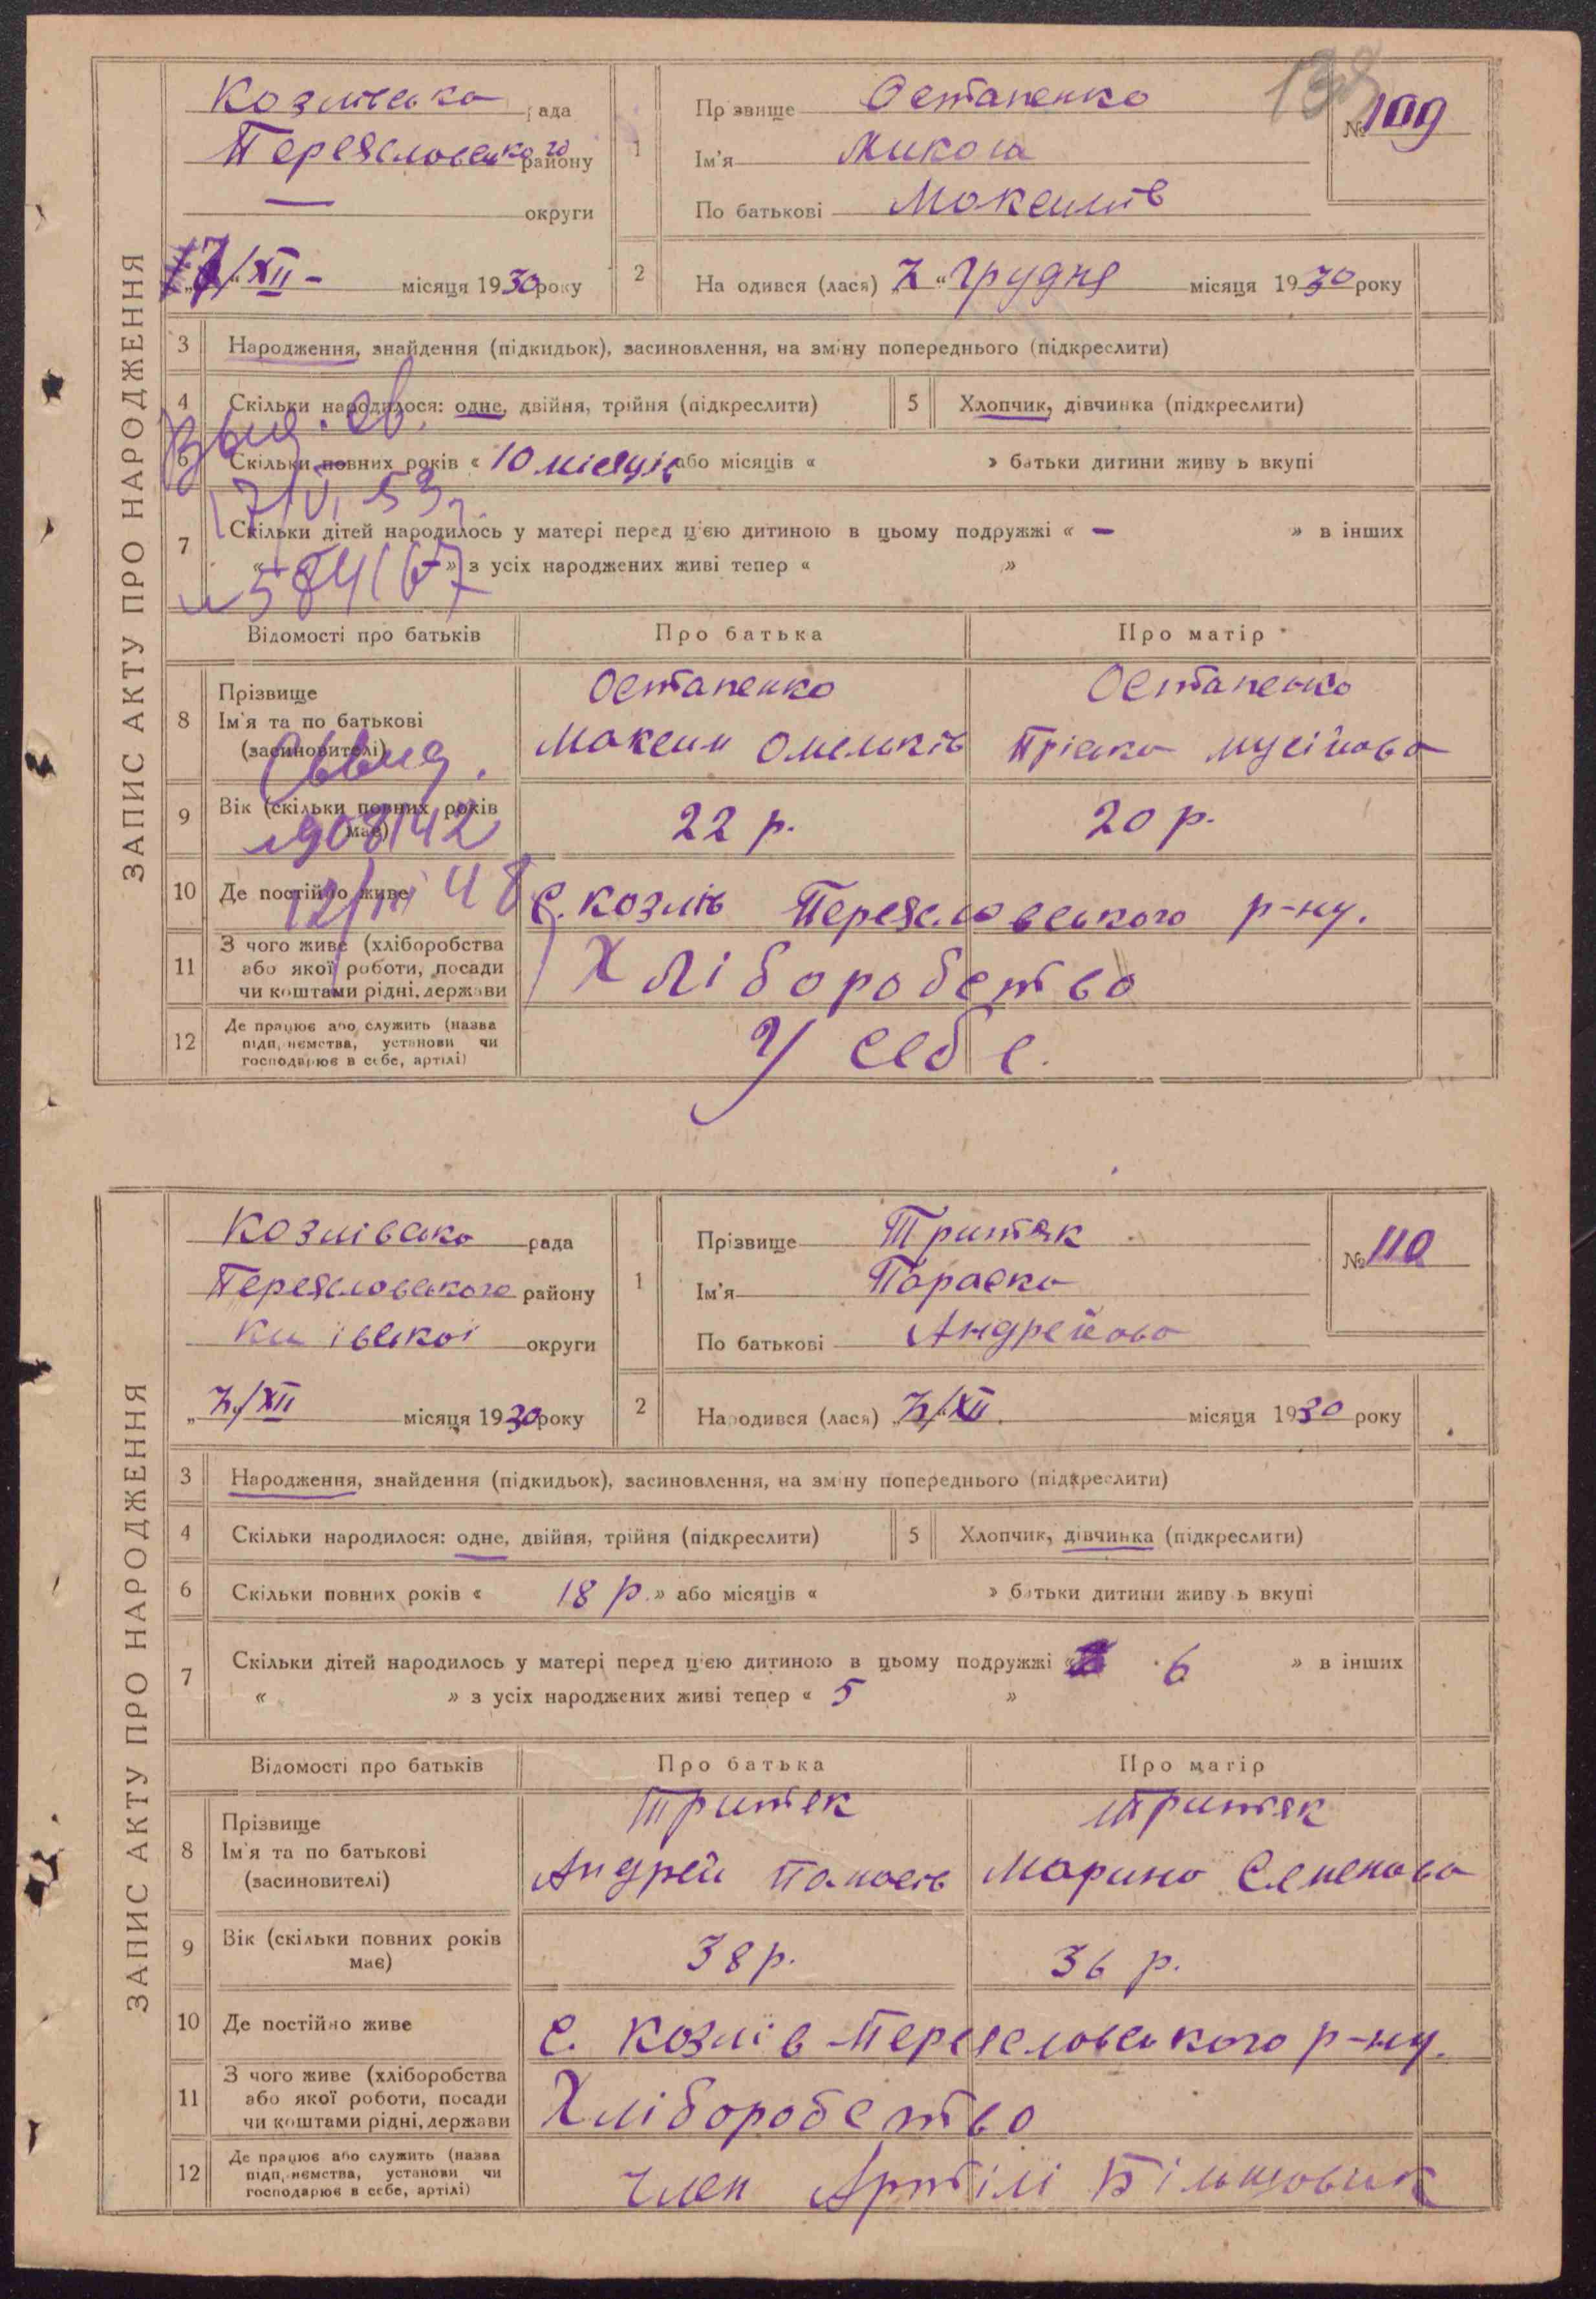 138
ЗАПИС АКТУ ПРО НАРОДЖЕННЯ
Козлівська рада
Переяславського району
— округи
7/XII – місяця 1930 року
1 Прізвище Остапенко
Ім'я Микола
По батькові Максимів
№ 109
2 Народився (лася) 7 “ Грудня місяця 1930 року
3 Народження, знайдення (підкидьок), засиновлення, на зміну попереднього (підкреслити)
4 Скільки народилося: одне, двійня, трійня (підкреслити) 5 Хлопчик, дівчинка (підкреслити)
Выд. св.
6 Скільки повних років « 10 місяців або місяців « » батьки дитини живуть вкупі
17/VI 53
7 Скільки дітей народилось у матері перед цією дитиною в цьому подружжі « – » в інших
« – » з усіх народжених живі тепер « »
Відомості про батьків Про батька Про матір
8 Прізвище Ім'я та по батькові (засиновителі)
Остапенко Остапенко
Максим Омельків Пріська Мусійова
9 Вік (скільки повних років має) 22 р. 20 р.
10 Де постійно живе с. Козлів Переяславського р-ну.
11 З чого живе (хліборобства або якої роботи, посади чи коштами рідні, держави Хліборобство
12 Де працює або служить (назва підприємства, установи чи господарює в себе, артілі) У себе.
ЗАПИС АКТУ ПРО НАРОДЖЕННЯ
Козлівська рада
Переяславського району
Київської округи
„7“/XII місяця 1930 року
1 Прізвище Притяк
Ім'я Параска
По батькові Андрейова
№ 110
2 Народився (лася) 7/XII. місяця 1930 року
3 Народження, знайдення (підкидьок), засиновлення, на зміну попереднього (підкреслити)
4 Скільки народилося: одне, двійня, трійня (підкреслити) 5 Хлопчик, дівчинка (підкреслити)
6 Скільки повних років « 18 р. » або місяців « » батьки дитини живуть вкупі
7 Скільки дітей народилось у матері перед цією дитиною в цьому подружжі « 6 » в інших
« » з усіх народжених живі тепер « 5 »
Відомості про батьків Про батька Про матір
8 Прізвище Ім'я та по батькові (засиновителі)
Притяк Притяк
Андрей Панасів Марина Семенова
9 Вік (скільки повних років має) 38 р. 36 р.
10 Де постійно живе с. Козлів Переяславського р-ну.
11 З чого живе (хліборобства або якої роботи, посади чи коштами рідні, держави Хліборобство
12 Де працює або служить (назва підприємства, установи чи господарює в себе, артілі) Член Артілі Більшовик